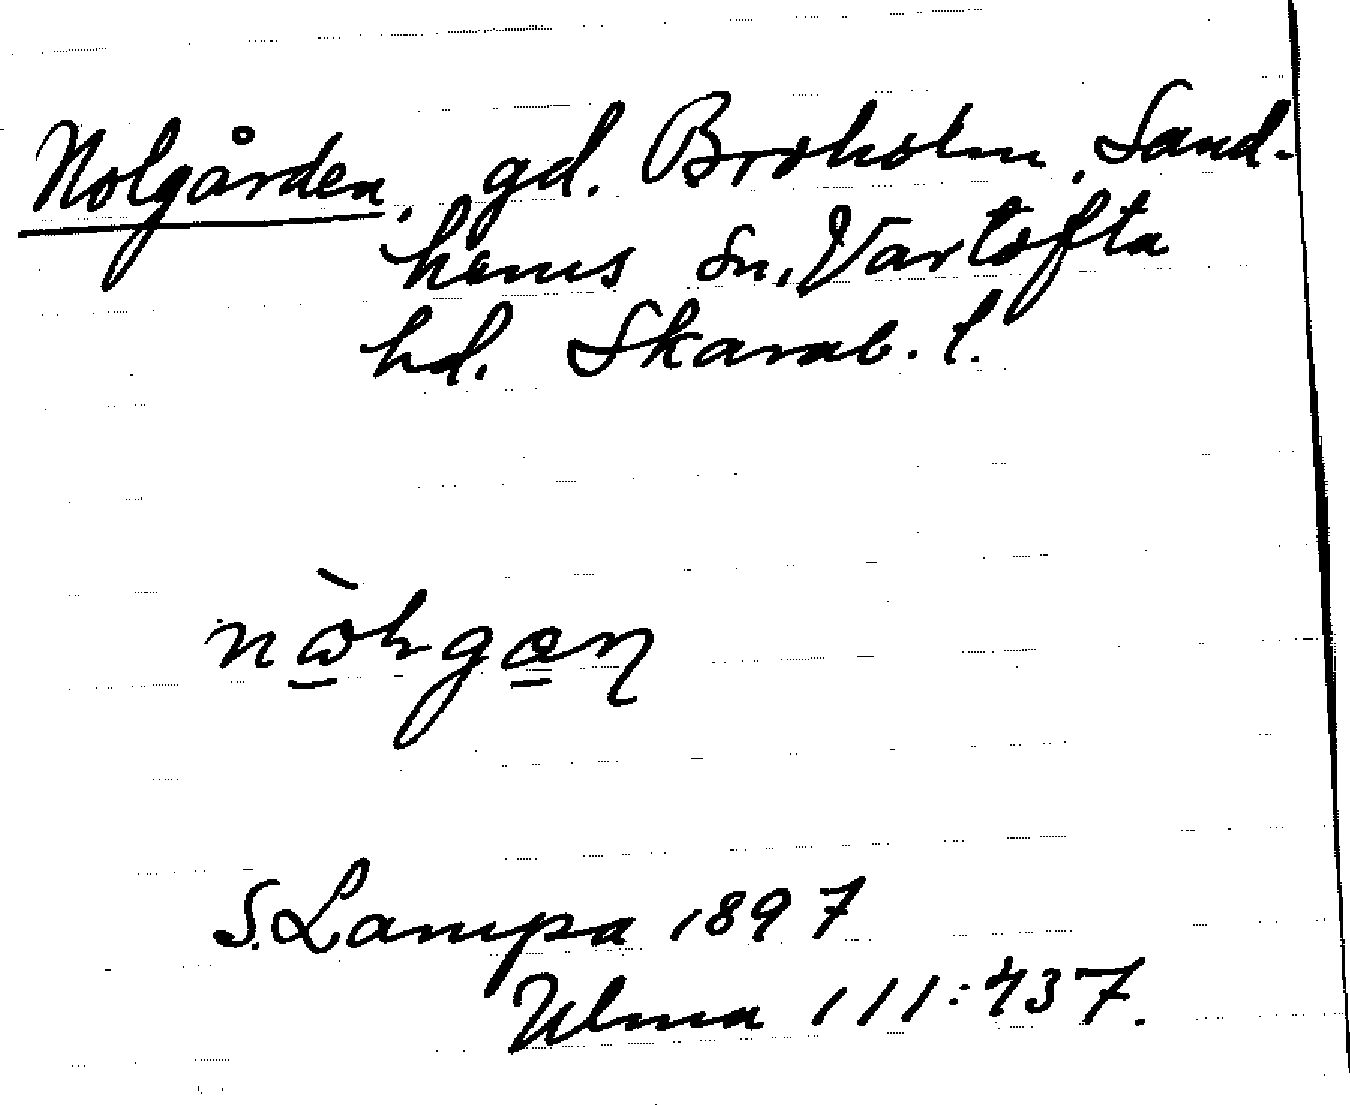 Nolgården, gd. Broholm, Sand-
hems sn, Vartofta
hd. Skarab. l.
S. Lampa 1897
Ulma 111:437.